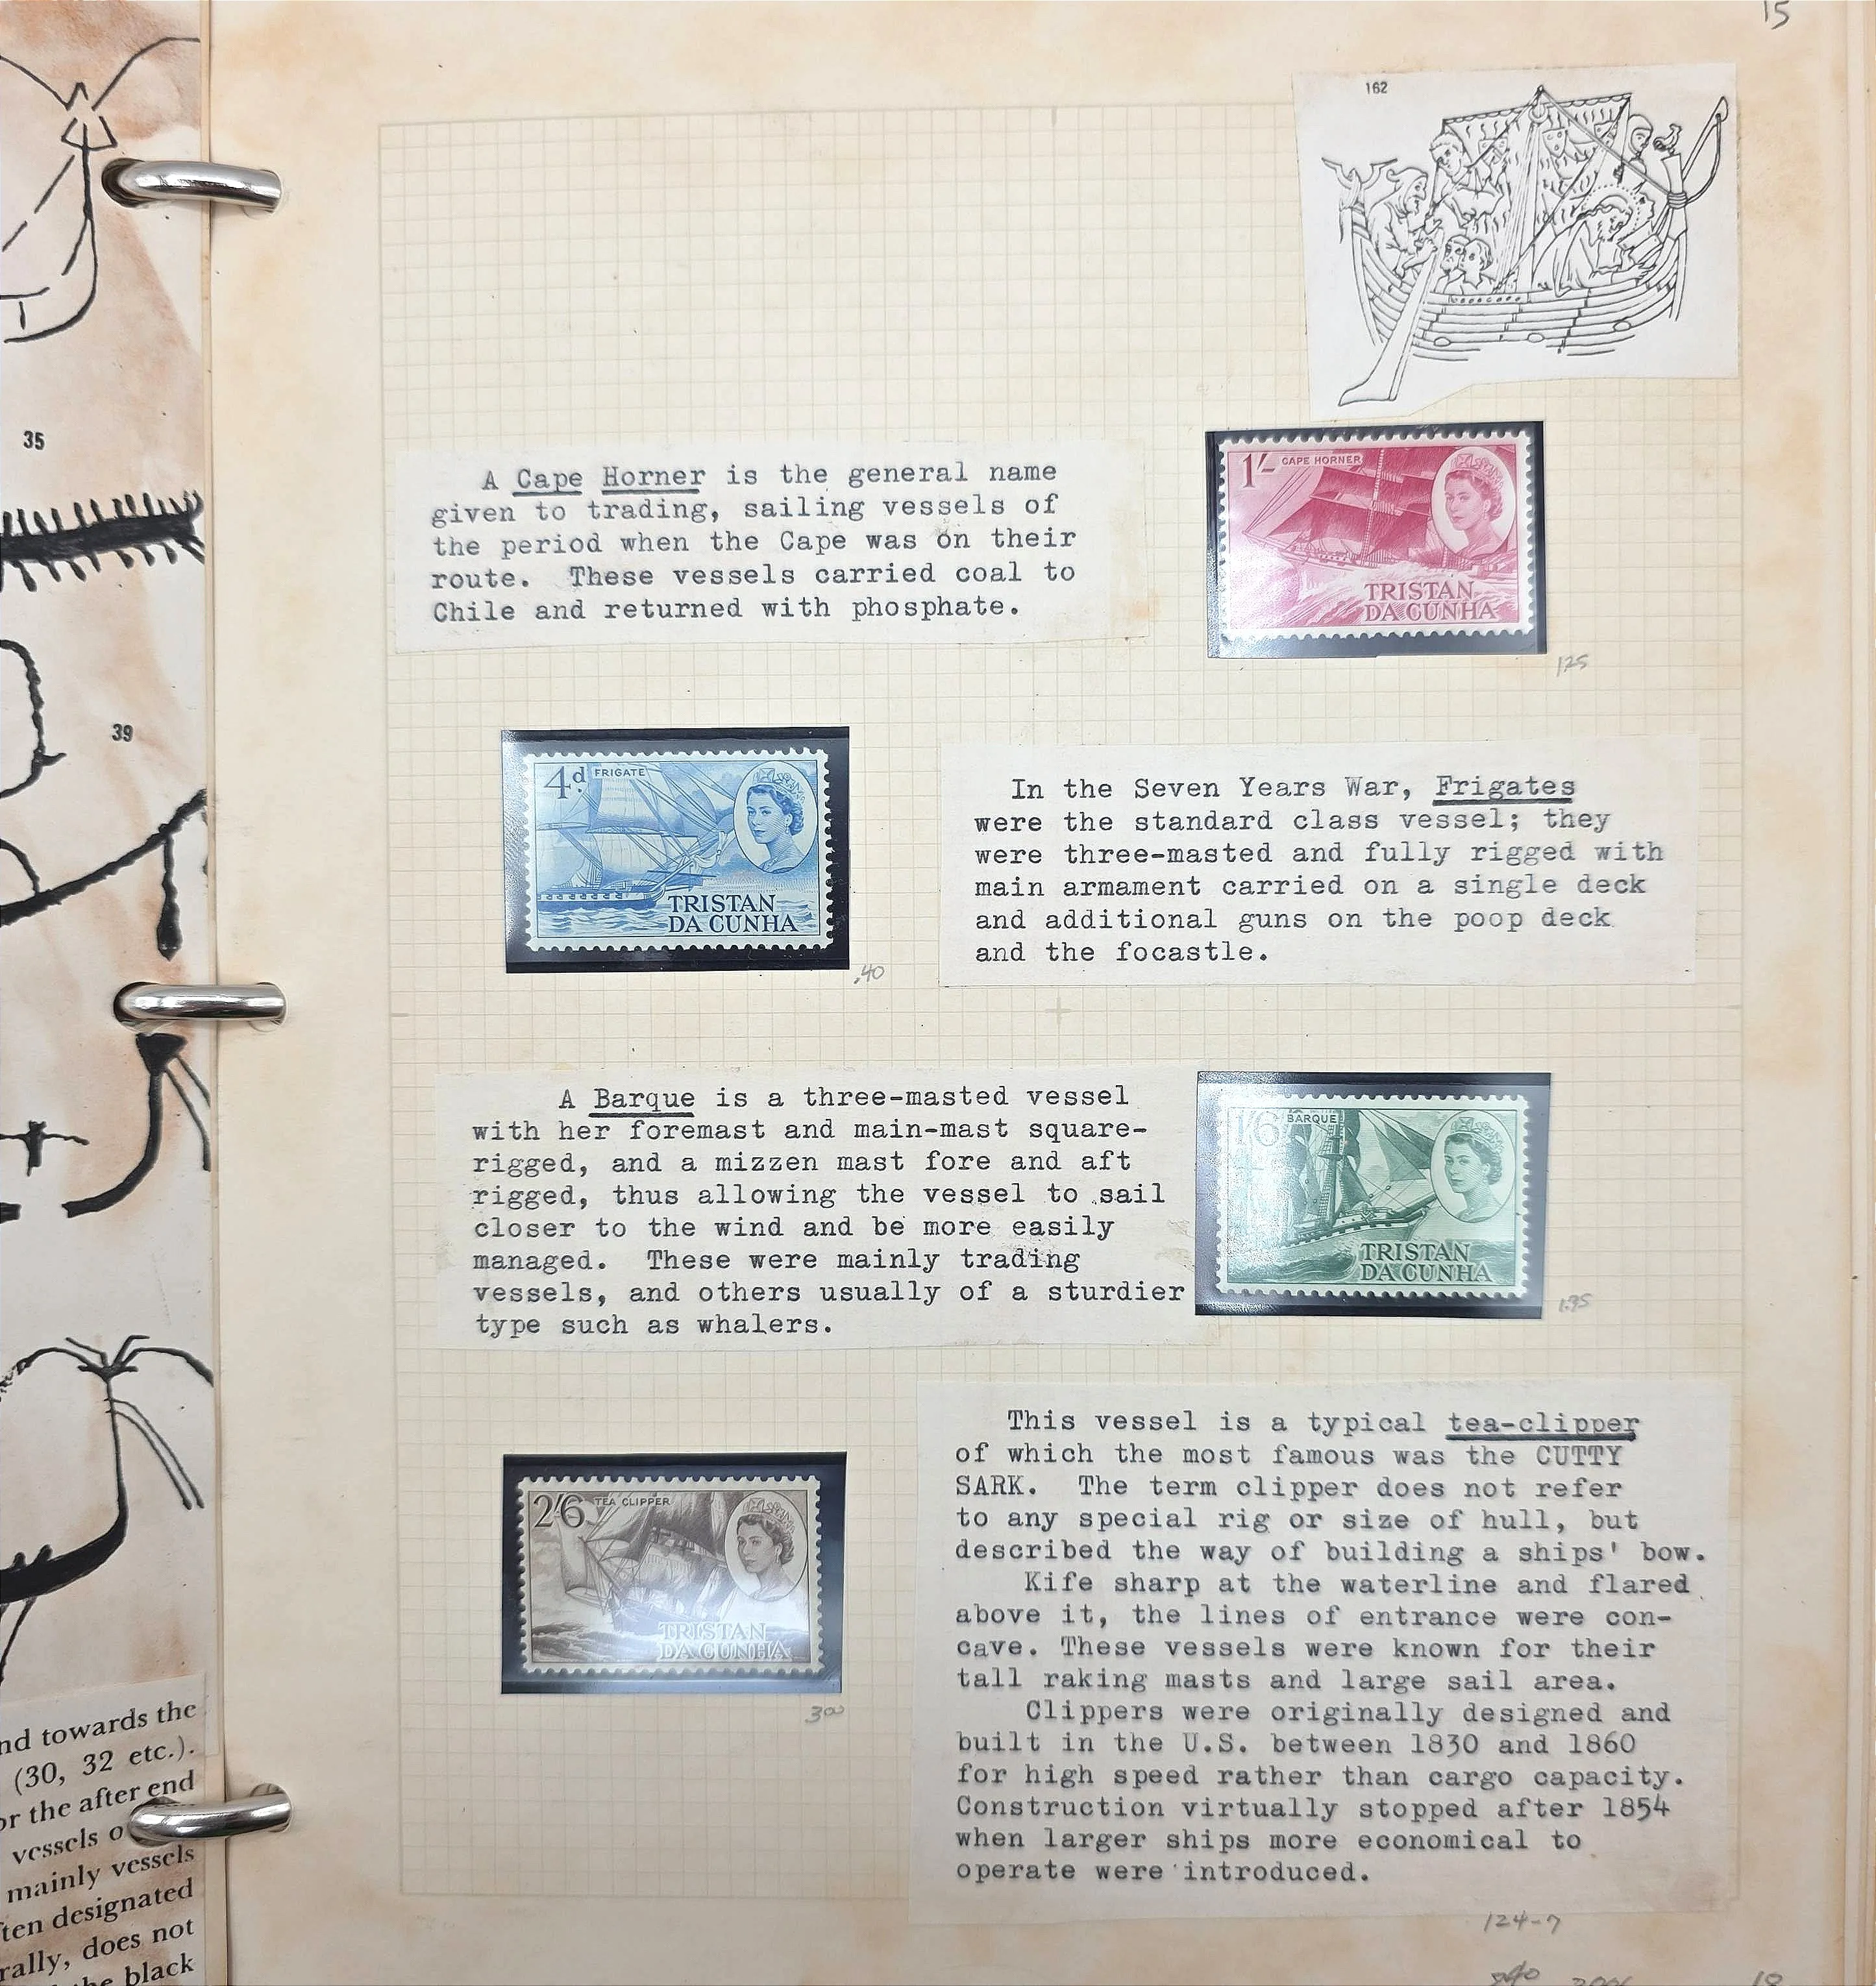 15
162
35
A Cape Horner is the general name
given to trading, sailing vessels of
the period when the Cape was on their
route. These vessels carried coal to
Chile and returned with phosphate.
1/- CAPE HORNER
TRISTAN
DA CUNHA
1.25
39
4d FRIGATE
TRISTAN
DA CUNHA
.40
In the Seven Years War, Frigates
were the standard class vessel; they
were three-masted and fully rigged with
main armament carried on a single deck
and additional guns on the poop deck
and the focastle.
A Barque is a three-masted vessel
with her foremast and main-mast square-
rigged, and a mizzen mast fore and aft
rigged, thus allowing the vessel to sail
closer to the wind and be more easily
managed. These were mainly trading
vessels, and others usually of a sturdier
type such as whalers.
1/6 BARQUE
TRISTAN
DA CUNHA
2/6 TEA CLIPPER
TRISTAN
DA CUNHA
3.00
This vessel is a typical tea-clipper
of which the most famous was the CUTTY
SARK. The term clipper does not refer
to any special rig or size of hull, but
described the way of building a ships' bow.
Kife sharp at the waterline and flared
above it, the lines of entrance were con-
cave. These vessels were known for their
tall raking masts and large sail area.
Clippers were originally designed and
built in the U.S. between 1830 and 1860
for high speed rather than cargo capacity.
Construction virtually stopped after 1854
when larger ships more economical to
operate were introduced.
124-7
nd towards the
(30, 32 etc.).
or the after end
vessels o
mainly vessels
ten designated
rally, does not
the black